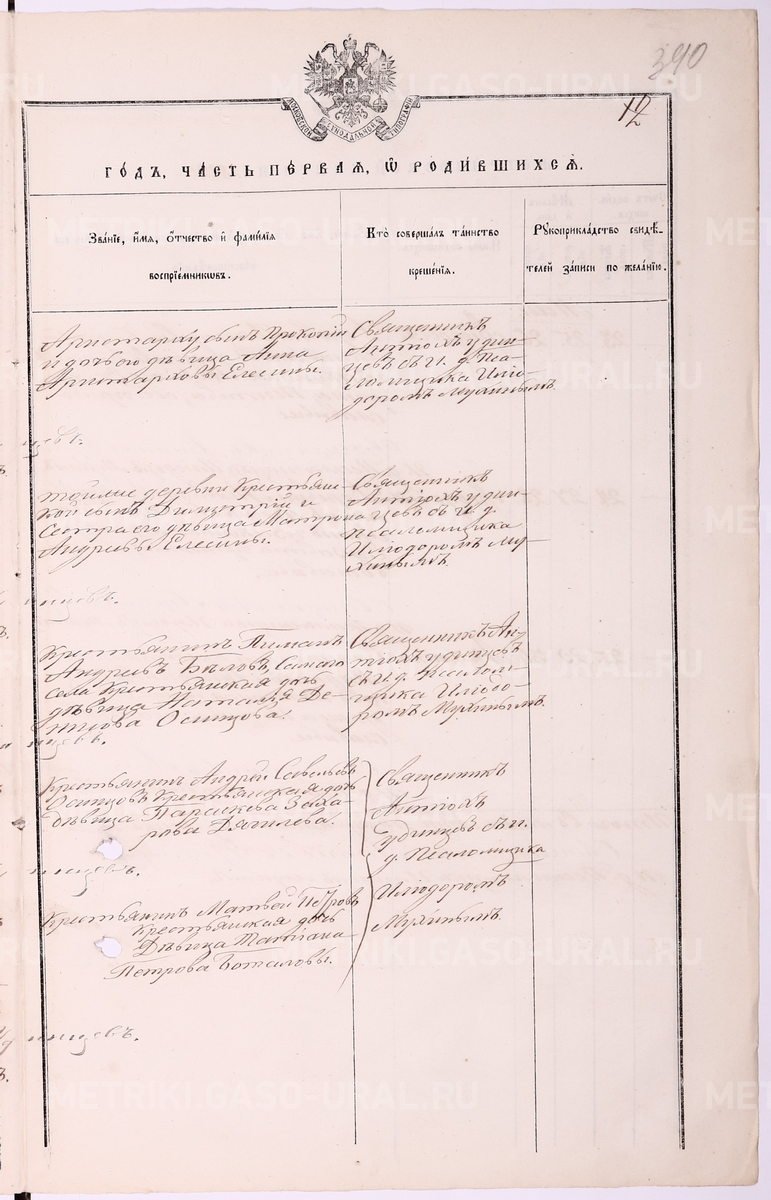 390
12
МОСКОВСКОЙ СѴНОДАЛЬНОЙ ТИПОГРАФІИ
ГОДЪ, ЧАСТЬ ПЕРВАЯ, Ѡ РОДИВШИХСЯ.
Званіе, имя, отчество и фамилія
воспріемниковъ.
Кто совершалъ таинство
крещенія.
Рукоприкладство свидѣ-
телей записи по желанію.
сынъ Прокопій
и дочь его дѣвица Анна
Аристарховы Елесины.
Священникъ
Антіохъ Удин-
цевъ съ и. д. Пса-
ломщика Иліо-
доромъ Мухинымъ.
тойже деревни Крестьян-
сынъ Димитрій и
Сестра его дѣвица Матрона
Андреевы Елесины.
Священникъ
Антіохъ Удин-
цевъ съ и. д.
псаломщика
Иліодоромъ Му-
хинымъ.
Крестьянинъ Пиманъ
Андреевъ Бѣловъ, Самаго
села Крестьянская дочь
дѣвица Наталья Де-
Осинцова.
Священникъ Ан-
тіохъ Удинцевъ
съ и. д. псалом-
щика Иліодо-
ромъ Мухинымъ.
Крестьянинъ Андрей Савельевъ
Осинцовъ Крестьянская дочь
дѣвица Параскева Заха-
рова Дягилева.
Священникъ
Антіохъ
Удинцевъ съ и.
д. Псаломщика
Крестьянинъ Матвей Петровъ
Крестьянская дочь
Дѣвица Татіана
Петрова Боталовы.
Иліодоромъ
Мухинымъ.
METRIKI.GASO-URAL.RU